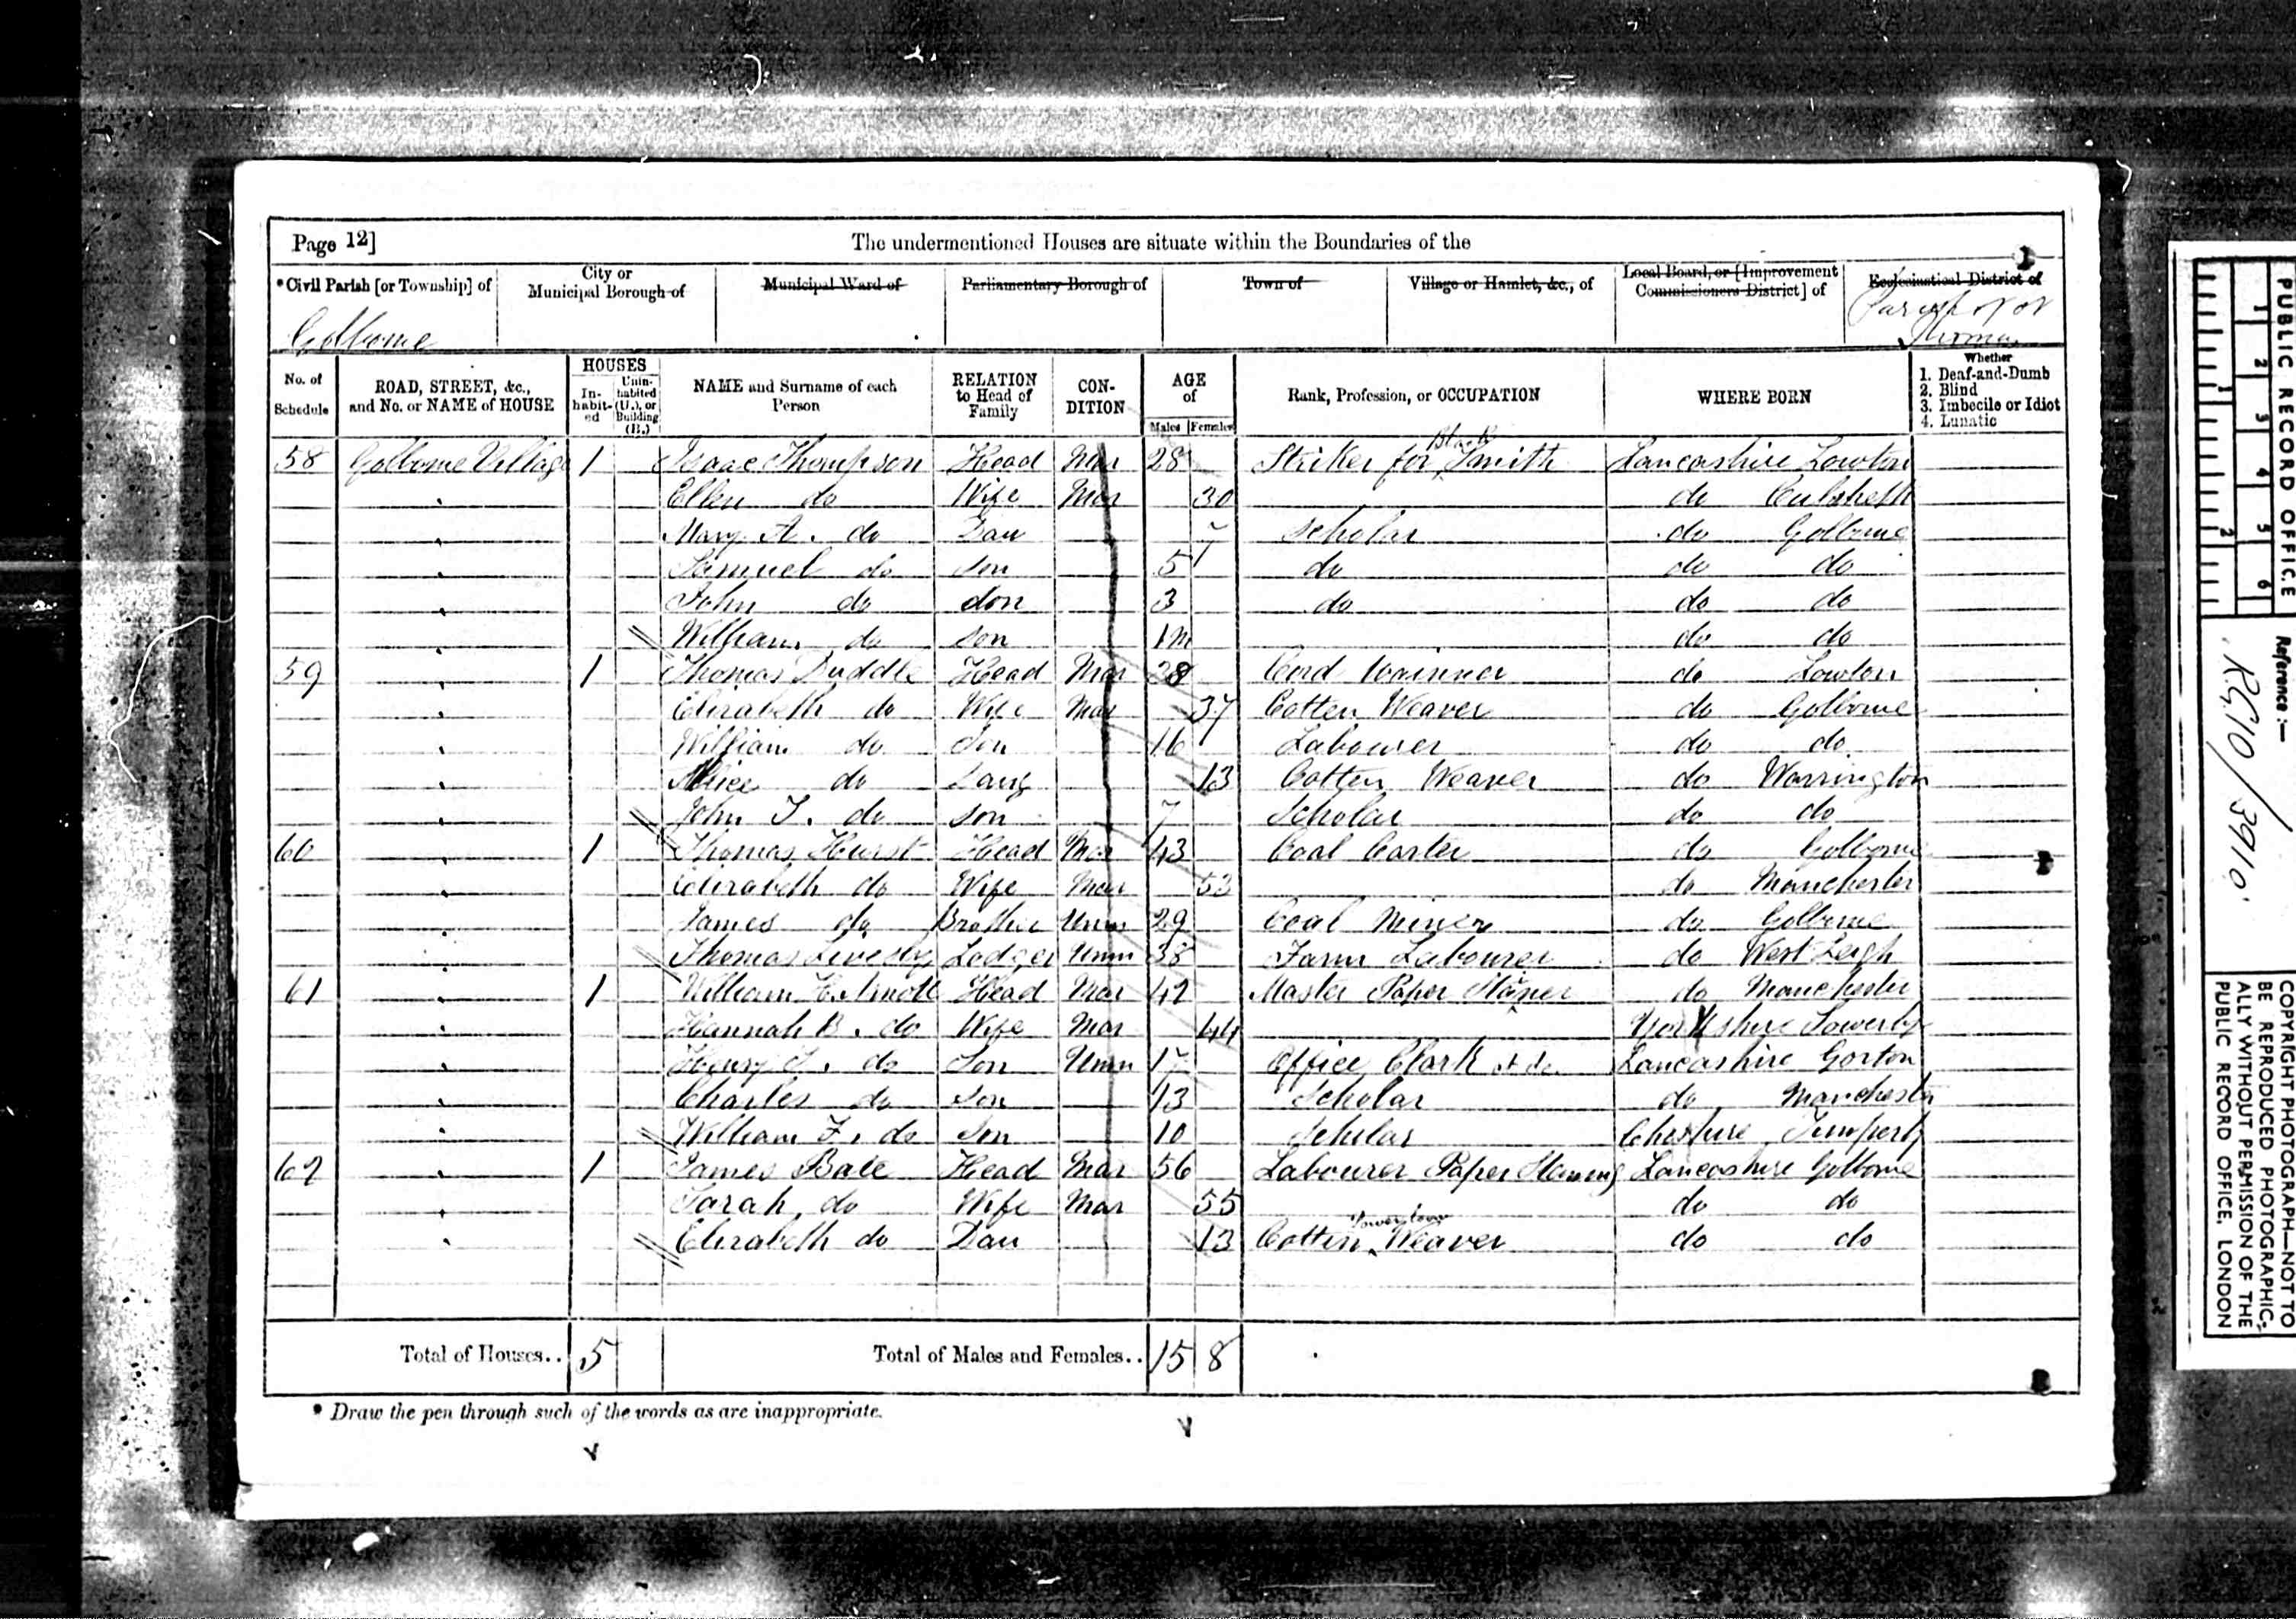 Page 12]
The undermentioned Houses are situate within the Boundaries of the
*Civil Parish [or Township] of
City or Municipal Borough of
Municipal Ward of
Parliamentary Borough of
Town of
Village or Hamlet, &c., of
Local Board, or [Improvement Commissioners District] of
Ecclesiastical District of
Golborne
Parish of St Thomas
No. of Schedule
ROAD, STREET, &c., and No. or NAME of HOUSE
HOUSES
In-habit-ed
Unin-habited (U.), or Building (B.)
NAME and Surname of each Person
RELATION to Head of Family
CON-DITION
AGE of
Males Females
Rank, Profession, or OCCUPATION
WHERE BORN
Whether
1. Deaf-and-Dumb
2. Blind
3. Imbecile or Idiot
4. Lunatic
58 Golborne Village 1 Isaac Thompson Head Mar 28 Striker for Black Smith Lancashire Lowton
Ellen do Wife Mar 30 do Culcheth
Mary A. do Dau 7 Scholar do Golborne
Samuel do Son 5 do do do
John do Son 3 do do do
William do Son 1m do do
59 1 Thomas Duddle Head Mar 28 Cord Wainner do Lowton
Elizabeth do Wife Mar 37 Cotten Weaver do Golborne
William do Son 16 Labourer do do
Alice do Daug 13 Cotten Weaver do Warrington
John T. do Son 7 Scholar do do
60 1 Thomas Hurst Head Mar 43 Coal Carter do Golborne
Elizabeth do Wife Mar 53 do Manchester
James do Brother Unm 29 Coal Miner do Golborne
Thomas Livesly Lodger Unm 38 Farm Labourer do West Leigh
61 1 William H. Arnott Head Mar 42 Master Paper Stainer do Manchester
Hannah B. do Wife Mar 44 Yorkshire Sowerby
Henry S. do Son Unm 17 Office Clark at do Lancashire Gorton
Charles do Son 13 Scholar do Manchester
William F. do Son 10 Scholar Cheshire Timperly
62 1 James Bate Head Mar 56 Labourer Paper Staining Lancashire Golborne
Sarah do Wife Mar 55 do do
Elizabeth do Dau 13 Cotten Power loom Weaver do do
Total of Houses.. 5
Total of Males and Females.. 15 8
* Draw the pen through such of the words as are inappropriate.
PUBLIC RECORD OFFICE
1 2 3 4 5 6
1 2
Reference :—
RG10/3910
COPYRIGHT PHOTOGRAPH—NOT TO
BE REPRODUCED PHOTOGRAPHIC-
ALLY WITHOUT PERMISSION OF THE
PUBLIC RECORD OFFICE, LONDON